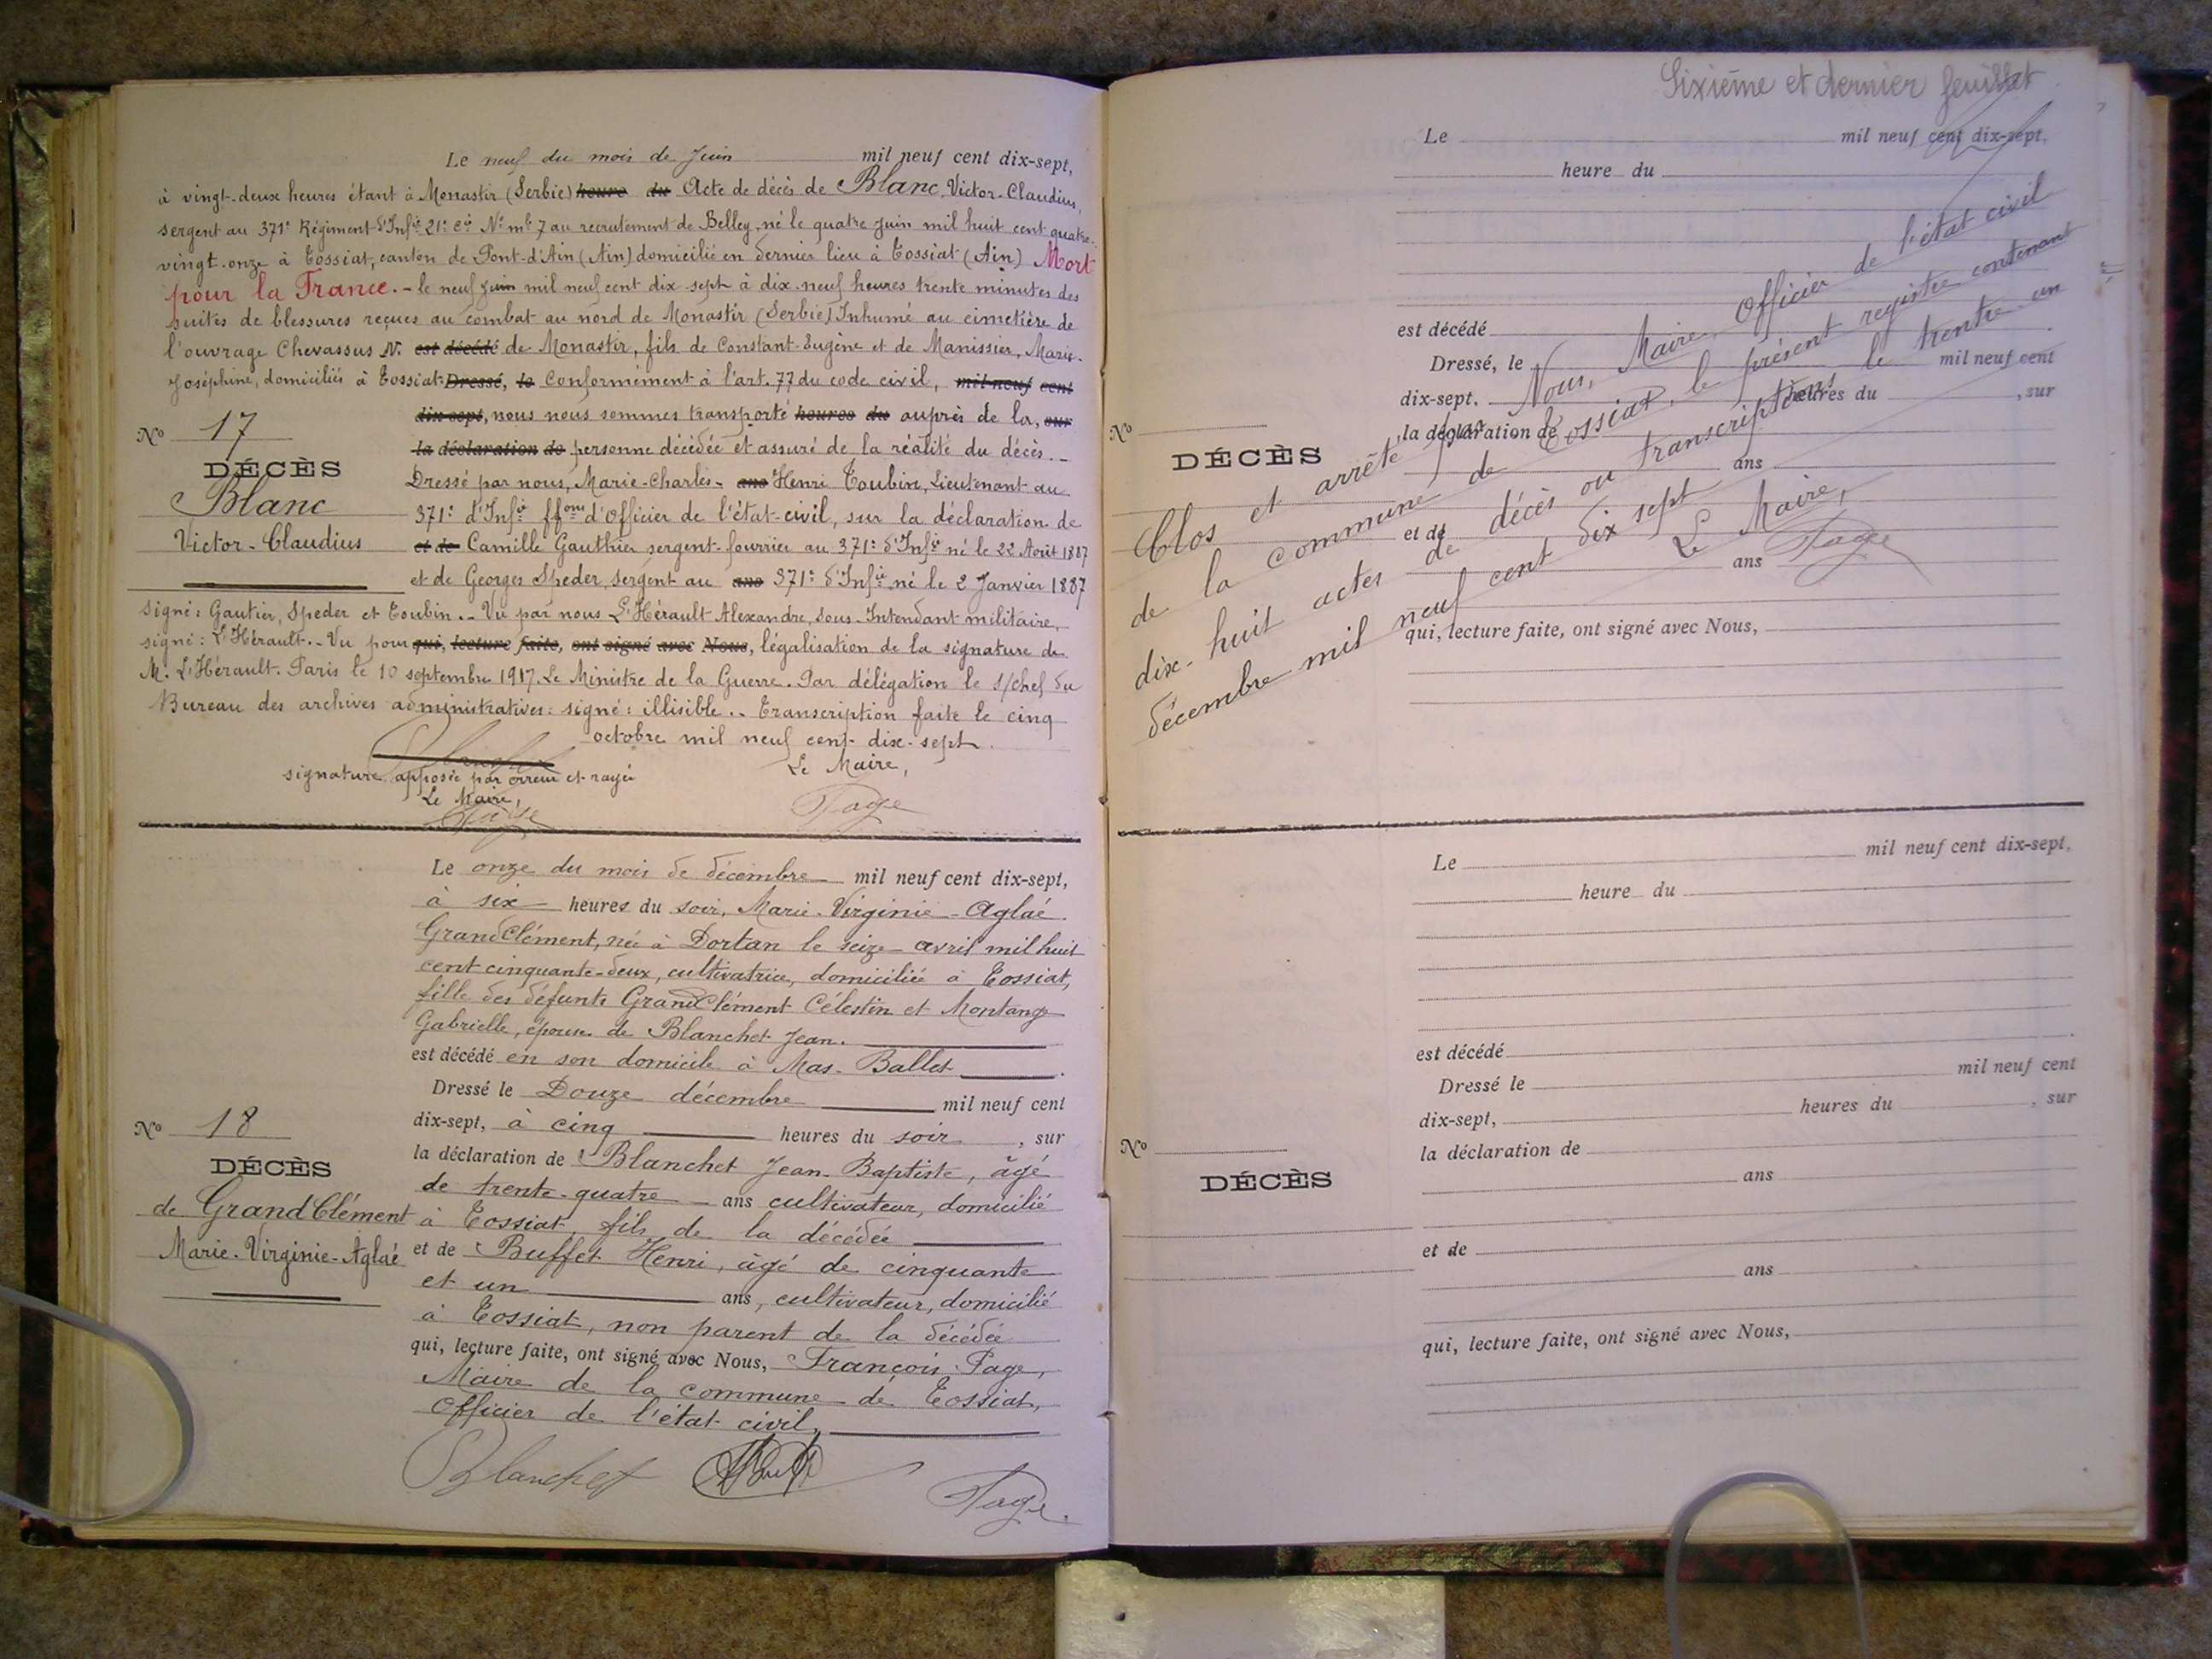 Le neuf du mois de Juin mil neuf cent dix-sept,
à vingt-deux heures étant à Monastir (Serbie) heure du Acte de décès de Blanc, Victor-Claudius,
sergent au 371e Régiment d'Infie 21e Cie No mle 7 au recrutement de Belley, né le quatre juin mil huit cent quatre-
vingt-onze à Tossiat, canton de Pont-d'Ain (Ain) domicilié en dernier lieu à Tossiat (Ain) Mort
pour la France. - le neuf juin mil neuf cent dix-sept à dix-neuf heures trente minutes des
suites de blessures reçues au combat au nord de Monastir (Serbie) Inhumé au cimetière de
l'ouvrage Chevassus N. est décédé de Monastir, fils de Constant-Eugène et de Manissier, Marie-
Joséphine, domiciliés à Tossiat. Dressé, le Conformément à l'art. 77 du code civil, mil neuf cent
dix-sept, nous nous sommes transporté heures du auprès de la, sur
la déclaration de personne décédée et assuré de la réalité du décès. -
No 17
DÉCÈS
Blanc
Victor-Claudius
Dressé par nous, Marie-Charles- ans Henri Toubin, Lieutenant au
371e d'Infie ffons d'Officier de l'état-civil, sur la déclaration de
et de Camille Gauthier sergent-fourrier au 371e d'Infie né le 22 Août 1887
et de Georges Speder, sergent au ans 371e d'Infie né le 2 Janvier 1887
signé: Gautier, Speder et Toubin. - Vu par nous L'Hérault Alexandre, Sous-Intendant militaire,
signé: L'Hérault. - Vu pour qui, lecture faite, ont signé avec Nous, légalisation de la signature de
M. L'Hérault. Paris le 10 septembre 1917. Le Ministre de la Guerre. Par délégation le s/chef du
Bureau des archives administratives: signé: illisible. - Transcription faite le cinq
octobre mil neuf cent dix-sept.
signature apposée par erreur et rayée
Le Maire,
Page
Le Maire,
Page
Le onze du mois de décembre mil neuf cent dix-sept,
à six heures du soir, Marie-Virginie-Aglaé
GrandClément, née à Dortan le seize avril mil huit
cent cinquante-deux, cultivatrice, domiciliée à Tossiat,
fille des défunts GrandClément Célestin et Montange
Gabrielle, épouse de Blanchet Jean.
est décédé en son domicile à Mas-Ballet.
Dressé le Douze décembre mil neuf cent
dix-sept, à cinq heures du soir, sur
la déclaration de Blanchet Jean-Baptiste, âgé
de trente-quatre ans cultivateur, domicilié
à Tossiat, fils de la décédée
et de Buffet Henri, âgé de cinquante
et un ans, cultivateur, domicilié
à Tossiat, non parent de la décédée
qui, lecture faite, ont signé avec Nous, François Page,
Maire de la commune de Tossiat,
Officier de l'état civil,
No 18
DÉCÈS
de GrandClément
Marie-Virginie-Aglaé
Blanchet
Page
Sixième et dernier feuillet
Le mil neuf cent dix-sept,
heure du
est décédé
Dressé, le mil neuf cent
dix-sept, heures du , sur
la déclaration de
ans
et de
ans
qui, lecture faite, ont signé avec Nous,
No
DÉCÈS
Clos et arrêté par Nous, Maire, Officier de l'état civil
de la commune de Tossiat, le présent registre contenant
dix-huit actes de décès ou transcriptions le trente un
décembre mil neuf cent dix sept
Le Maire,
Page
Le mil neuf cent dix-sept,
heure du
est décédé
Dressé le mil neuf cent
dix-sept, heures du , sur
la déclaration de
ans
et de
ans
qui, lecture faite, ont signé avec Nous,
No
DÉCÈS